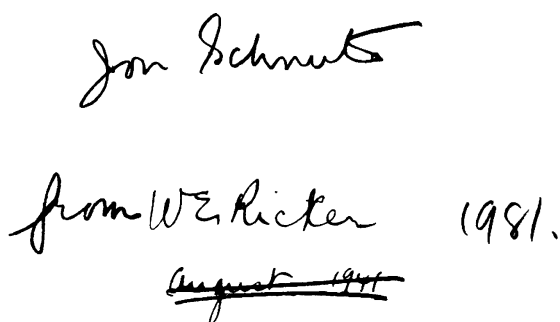 Jon Schnute
from W E Ricker 1981.
August 1941